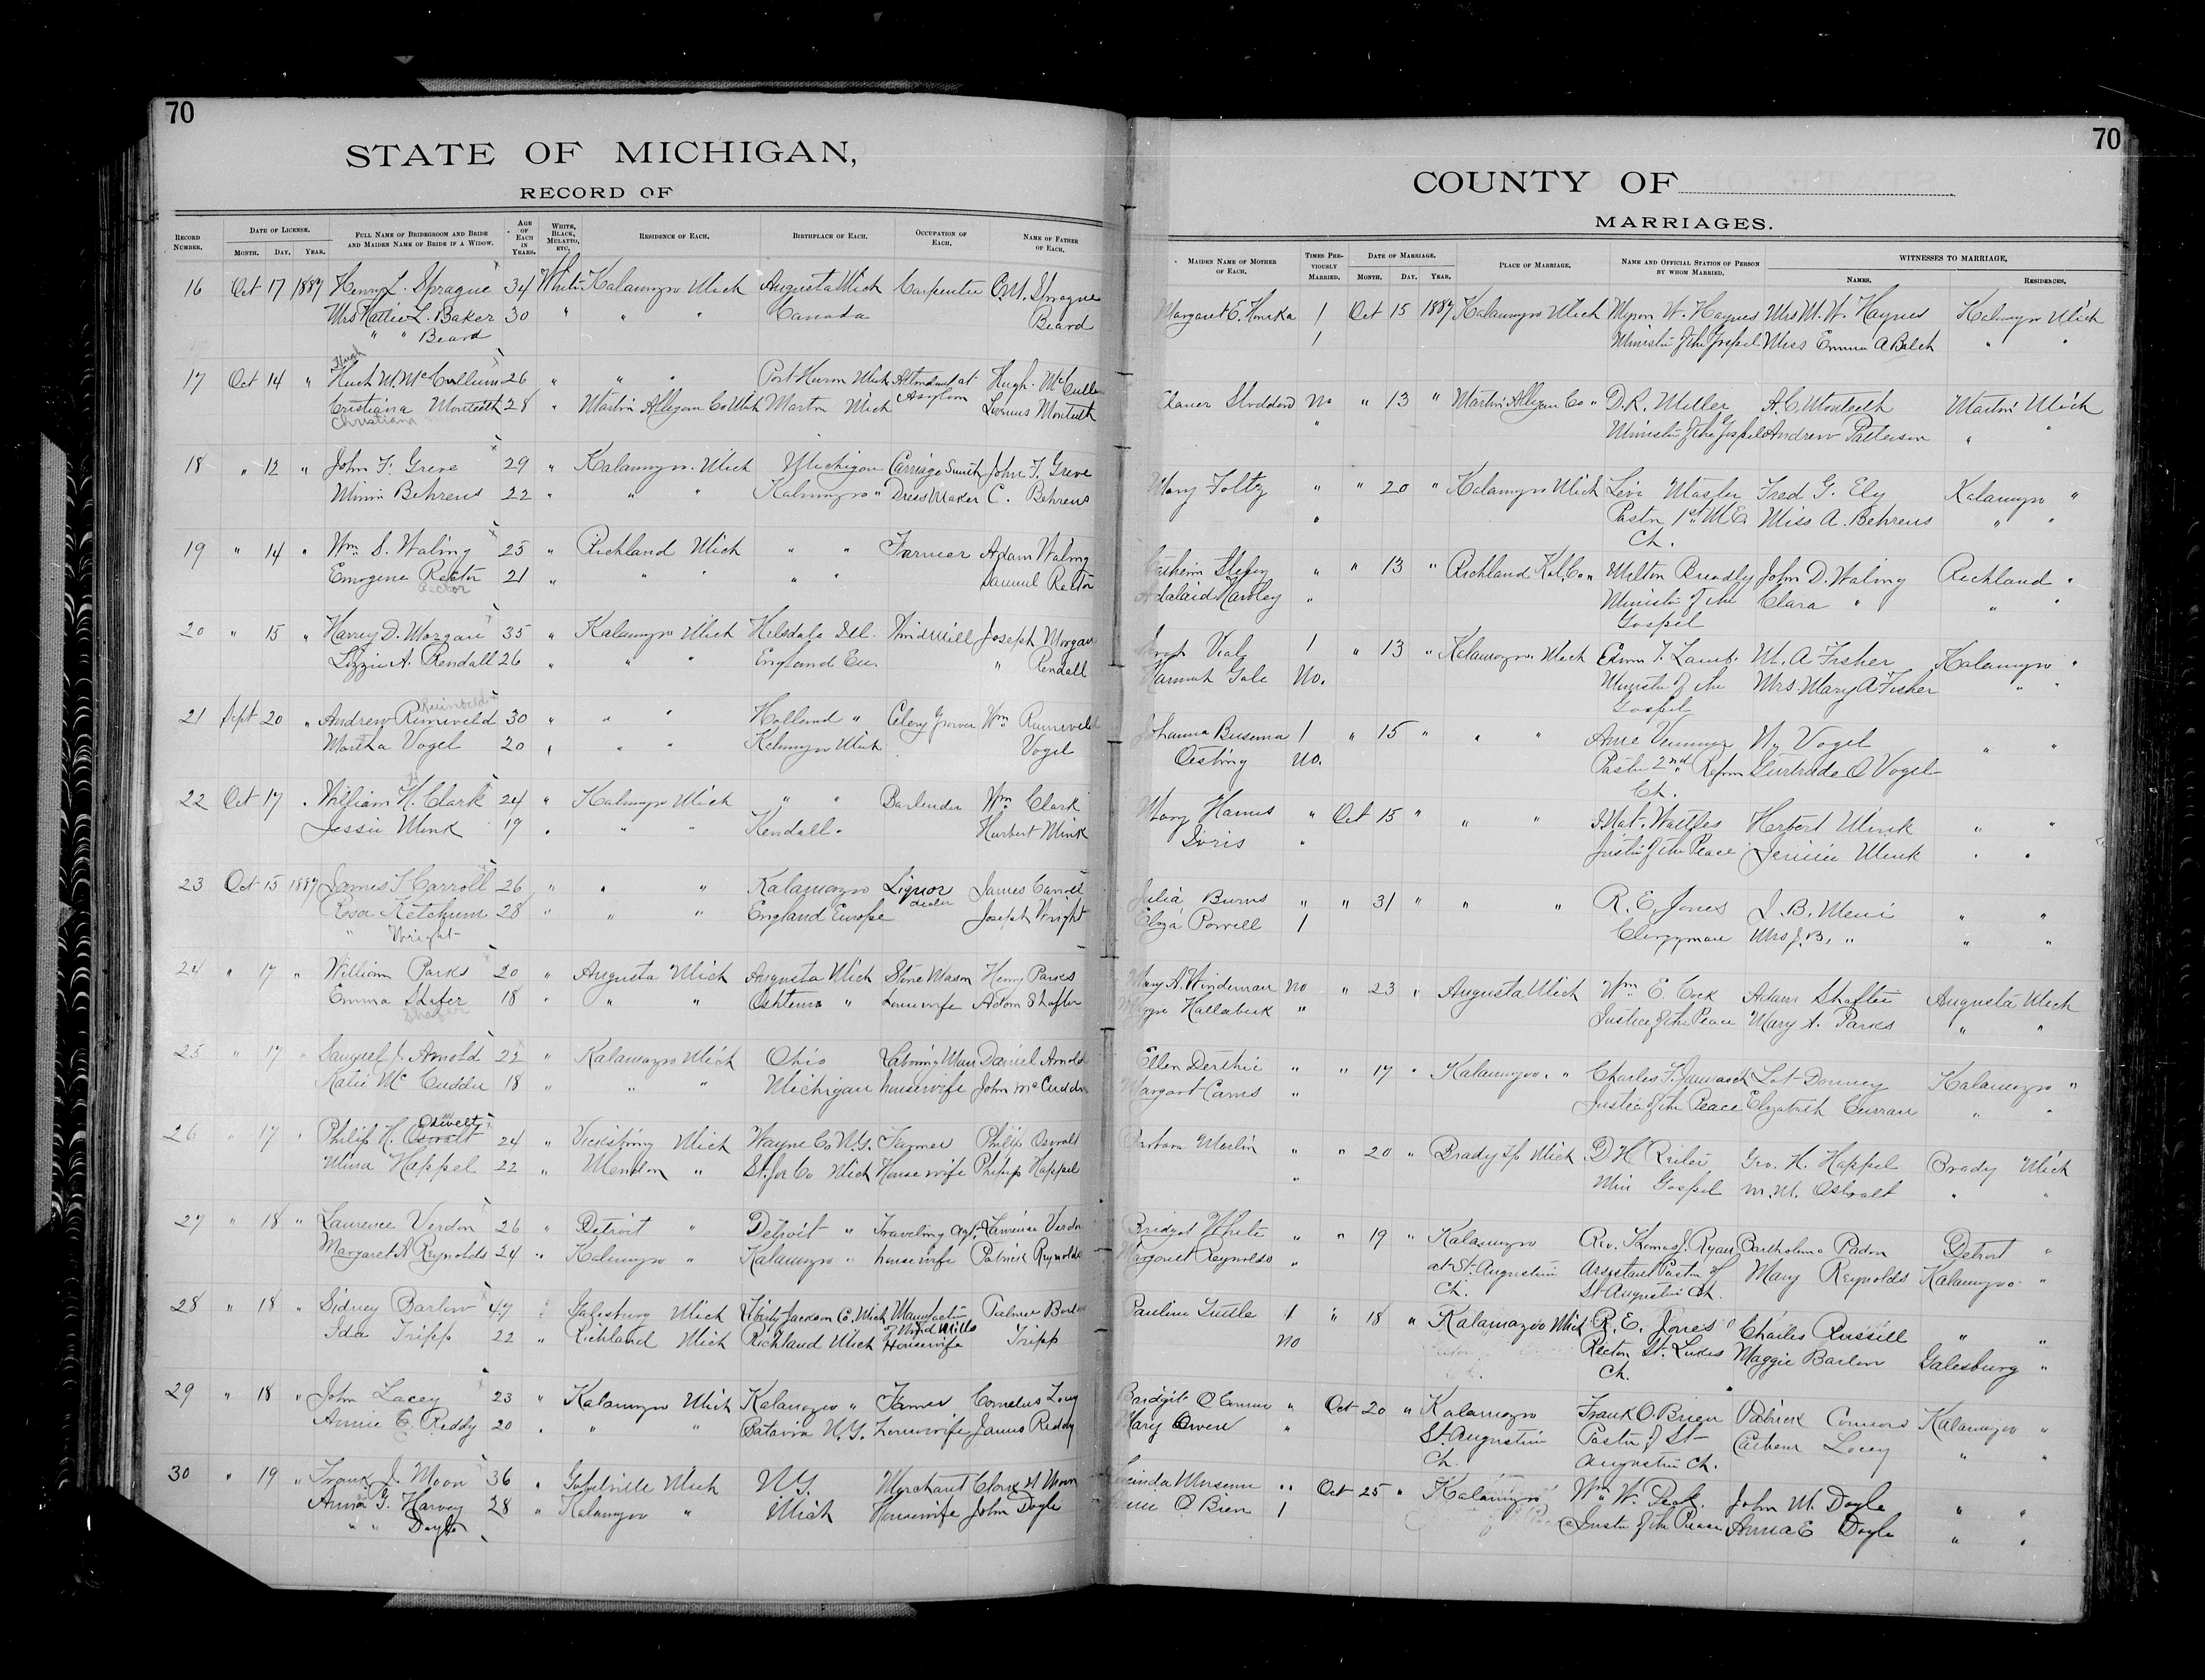 70
STATE OF MICHIGAN,
RECORD OF
RECORD NUMBER.
DATE OF LICENSE.
MONTH. DAY. YEAR.
FULL NAME OF BRIDEGROOM AND BRIDE AND MAIDEN NAME OF BRIDE IF A WIDOW.
AGE OF EACH IN YEARS.
WHITE, BLACK, MULATTO, ETC.
RESIDENCE OF EACH.
BIRTHPLACE OF EACH.
OCCUPATION OF EACH.
NAME OF FATHER OF EACH.
16 Oct 17 1887 Henry L. Sprague 34 White Kalamazoo Mich Augusta Mich Carpenter Sprague
Mrs Hattie L. Baker 30 " " " Canada Beard
" " Beard
Hugh
17 Oct 14 " Hugh M. McCullum 26 " " " Port Huron Mich Attendant at Asylum Hugh McCullum
Cristiana Monteith 28 " Martin Allegan Co Mich Martin Mich Monteith
Christiana
18 " 12 " John F. Greve 29 " Kalamazoo Mich Michigan Carriage Smith John F. Greve
Minnie Behrens 22 " " " Kalamazoo " Dress Maker C. Behrens
19 " 14 " Wm. S. Waling 25 " Richland Mich " " Farmer Adam Waling
Emogene Rector 21 " " " " " Samuel Rector
Rector
20 " 15 " Harvey D. Morgan 35 " Kalamazoo Mich Windmill Joseph Morgan
Lizzie A. Rendall 26 " " " England Eu. " Rendall
21 Sept 20 " Andrew 30 " " " Holland " Celery Grower Wm
Martha Vogel 20 " " " Kalamazoo Mich Vogel
22 Oct 17 " William H. Clark 24 " Kalamazoo Mich " " Bartender Wm Clark
Jessie Mink 19 " " " Kendall " Herbert Mink
23 Oct 15 1887 James T Carroll 26 " " " Kalamazoo Liquor dealer James Carroll
Rosa Ketchum 28 " " " England Europe Joseph Wright
" Wright
24 " 17 " William Parks 20 " Augusta Mich Augusta Mich Stone Mason Henry Parks
Emma Shafer 18 " " " Oshtemo " housewife Adam Shafter
25 " 17 " Samuel J. Arnold 22 " Kalamazoo Mich Ohio Laboring Man Daniel Arnold
Katie McCudden 18 " " " Michigan housewife John McCudden
26 " 17 " Philip H. Oswalt 24 " Vicksburg Mich Wayne Co N.Y. Farmer Philip Oswalt
Mina Happel 22 " Mendon " St. Jos Co Mich Housewife Philip Happel
27 " 18 " Laurence Verdon 26 " Detroit " Detroit " Traveling Agt. Lawrence Verdon
Margaret A Reynolds 24 " Kalamazoo " Kalamazoo " housewife Patrick Reynolds
28 " 18 " Sidney Barlow 47 " Galesburg Mich Liberty Jackson Co. Mich Manufactur of Wind Mills Palmer Barlow
Ida Tripp 22 " Richland Mich Richland Mich Housewife Tripp
29 " 18 " John Lacey 23 " Kalamazoo Mich Kalamazoo " Farmer Cornelius
Annie C. Reddy 20 " " " Batavia N.Y. housewife James Reddy
30 " 19 " Frank J. Moon 36 " Gobleville Mich N.Y. Merchant Moon
Anna G. Harvey 28 " Kalamazoo " Mich Housewife John Doyle
" " Doyle
70
COUNTY OF
MARRIAGES.
MAIDEN NAME OF MOTHER OF EACH.
TIMES PREVIOUSLY MARRIED.
DATE OF MARRIAGE.
MONTH. DAY. YEAR.
PLACE OF MARRIAGE.
NAME AND OFFICIAL STATION OF PERSON BY WHOM MARRIED.
WITNESSES TO MARRIAGE.
NAMES. RESIDENCES.
Margaret E. 1 Oct 15 1887 Kalamazoo Mich Myron W. Haynes Mrs M. W. Haynes Kalamazoo Mich
1 Minister of the Gospel Miss Emma A Balch " "
Stoddard No " 13 " Martin Allegan Co " D. R. Miller A. C Monteith Martin Mich
" Minister of the Gospel Andrew Patterson " "
Mary Foltz " " 20 " Kalamazoo Mich Levi Master Fred G. Ely Kalamazoo "
" Pastor 1st M E Miss A. Behrens " "
Ch.
" " 13 " Richland Kal. Co " Milton Bradley John D. Waling Richland "
Adalaid Hawley " Minister of the Clara " " "
Gospel
Sarah 1 " 13 " Kalamazoo Mich Lamb M. A Fisher Kalamazoo "
Hannah Gale No. Minister of the Mrs. Mary A Fisher " "
Gospel
Johanna 1 " 15 " " " Vogel " "
No. Pastor 2nd Reform Gertrude Vogel
Ch.
Mary " Oct 15 " " " Herbert Mink " "
" Justice of the Peace Jennie Mink " "
Julia Burns " " 31 " " " R. E. Jones " "
Eliza Powell 1 Clergyman Mrs J. B. " " "
Mary A. Windeman No " 23 " Augusta Mich Wm E. Cock Adam Shafter Augusta Mich
" Justice of the Peace Mary A. Parks " "
Ellen " " 17 " Kalamazoo " Charles F. Kalamazoo "
Margart " Justice of the Peace Elizabeth Curran " "
Barbara Marlin " " 20 " Brady Tp Mich D H Geo. H. Happel Brady Mich
" Min Gospel M. M. Oswalt " "
Bridget White " " 19 " Kalamazoo Rev. Thomas J. Ryan Padon Detroit "
Margaret Reynolds " at St. Augustin Assistant Pastor of Mary Reynolds Kalamazoo "
Ch. St Augustin Ch.
Pauline Tuttle 1 " 18 " Kalamazoo Mich R. E. Jones Charles Russell " "
No Rector St. Lukes Maggie Barlow Galesburg "
Ch.
" Oct 20 " Kalamazoo Frank O. Brien Patrick Connors Kalamazoo "
Mary Owen " St. Augustin Pastor of St Lacey " "
Ch. Augustin Ch.
" Oct 25 " Kalamazoo Wm W. Peck John M. Doyle " "
O Brien 1 Justice of the Peace Anna E Doyle " "